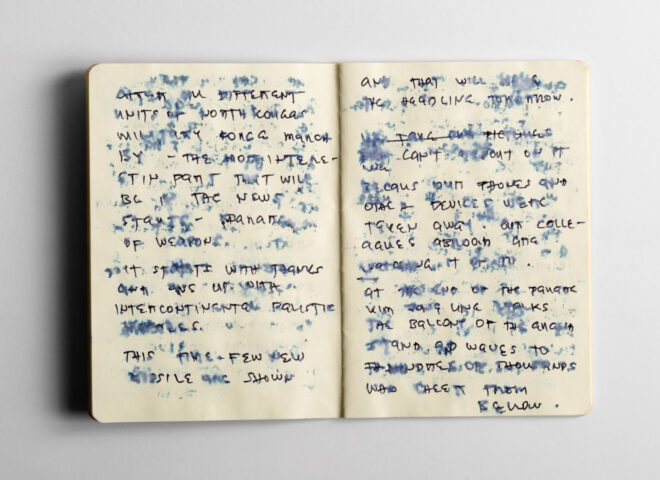 AFTER ALL DIFFERENT
UNITS OF NORTH KOREAN
MILITARY FORCE MARCH
BY - THE MOST INTERE-
STIN PART THAT WILL
BE I THE NEWS
STARTS - PARADE
OF WEAPONS.
IT STARTS WITH THANKS
AND ENDS UP WITH
INTERCONTINENTAL BALISTIC
MISSILES.
THIS TIME FEW NEW
MISSILE ARE SHOWN
AND THAT WILL
THE HEADLING TOMORROW.
I
CAN'T OUT ON IT
BECAUS OUR PHONES AND
OTHER DEVICES WERE
TAKEN AWAY. OUR COLLE-
AGUES ABROAD ARE
WATCHING IT
AT THE END OF THE PARADE
KIM JONG UNG WALKS
THE BALCONY OF THE GRAND
STAND AND WAVES TO
THOUSANDS
WHO CHEER FROM
BELLOW.